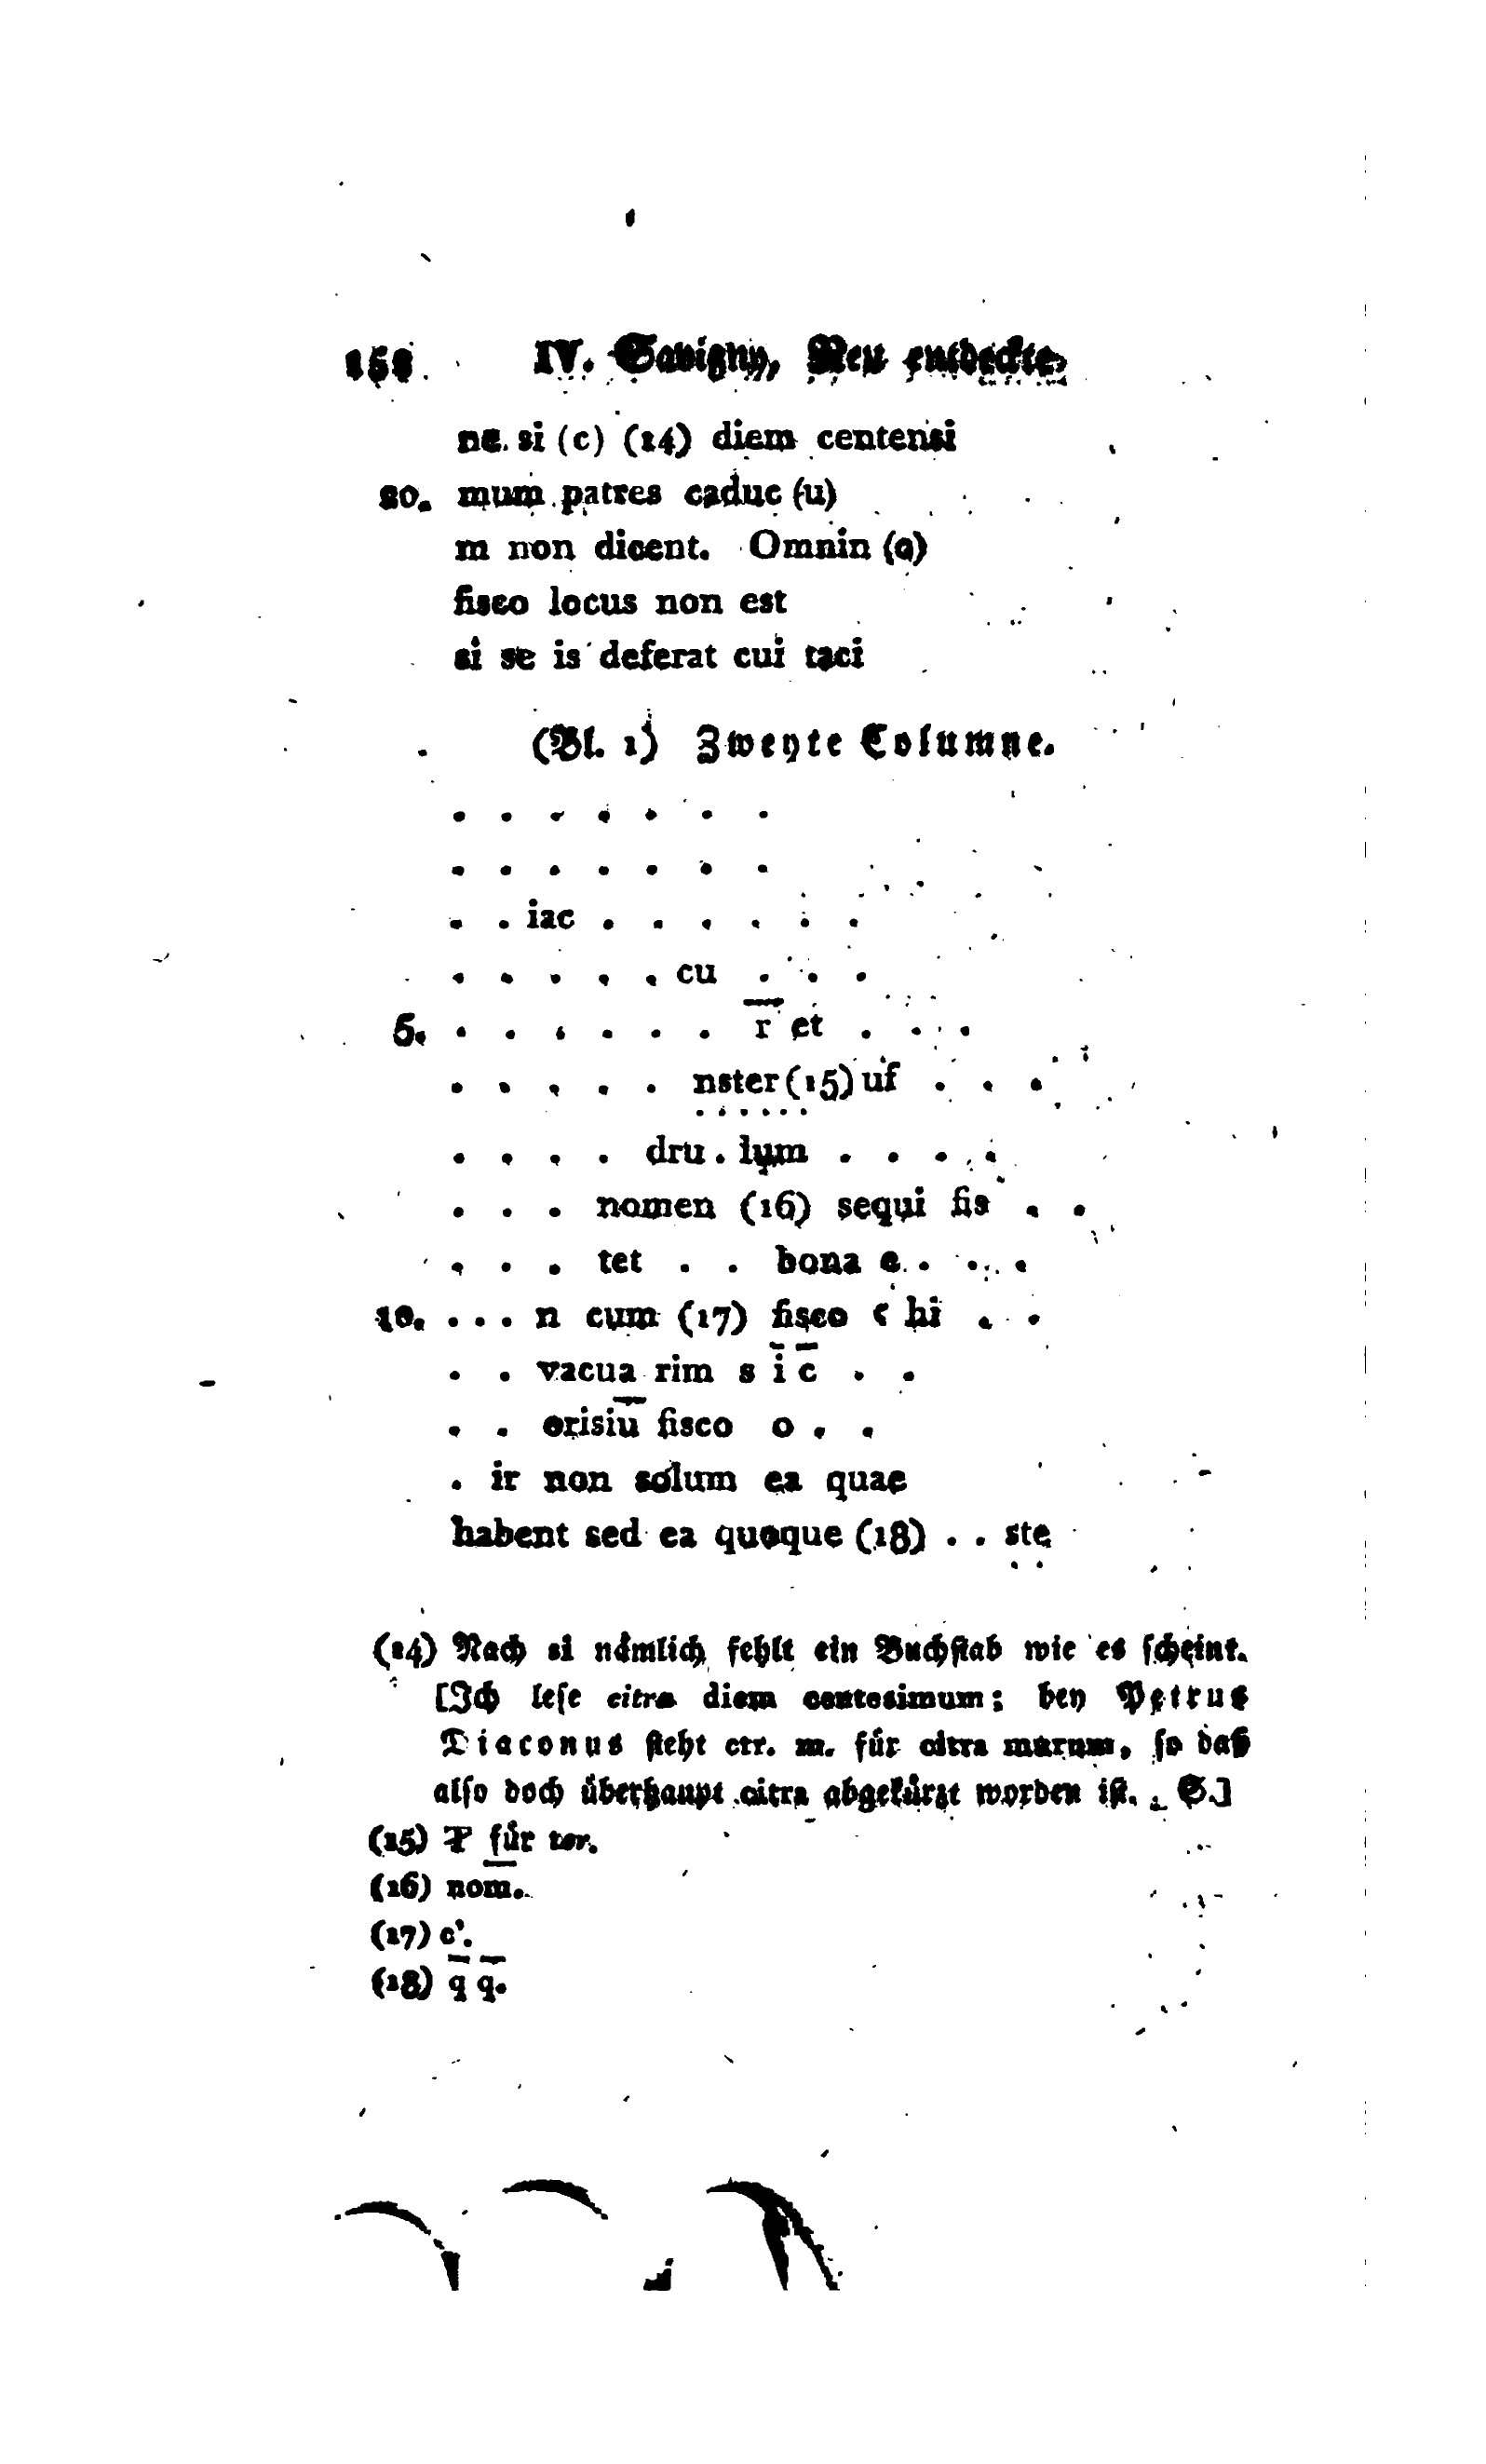 IV. Savigny, Neu entdeckte
ne si (c) (14) diem centensi
20. mum patres caduc (u)
m non dicent. Omnin (o)
fisco locus non est
si se is deferat cui taci
(Bl. 1) Zweyte Columne.
. . . . . . .
. . . . . . .
. . iac . . . . . .
. . . . . cu . . .
5. . . . . . . r̅ et . . .
. . . . . nster (15) uf . . .
. . . . dru . lum . . . .
. . . nomen (16) sequi fis . .
. . . tet . . bona e . . .
10. . . . n cum (17) fisco < hi . .
. . vacua rim s i̅ c̅ . .
. . orisiu̅ fisco o . .
. ir non solum ea quae
habent sed ea quoque (18) . . ste
(14) Nach si nämlich fehlt ein Buchstab wie es scheint.
[Ich lese citra diem centesimum; bey Petrus
Diaconus steht ctr. m. für citra murum, so daß
also doch überhaupt citra abgekürzt worden ist. S.]
(15) für ter.
(16) nom.
(17) c'.
(18) q̅ q̅.